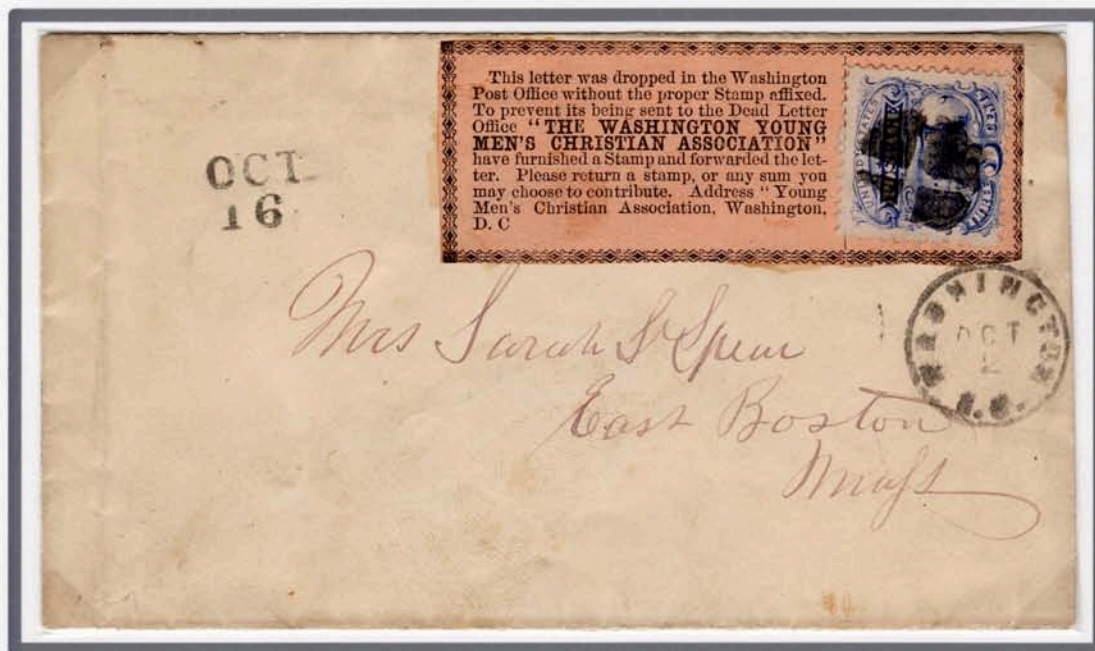 This letter was dropped in the Washington
Post Office without the proper Stamp affixed.
To prevent its being sent to the Dead Letter
Office "THE WASHINGTON YOUNG
MEN'S CHRISTIAN ASSOCIATION"
have furnished a Stamp and forwarded the let-
ter. Please return a stamp, or any sum you
may choose to contribute. Address "Young
Men's Christian Association, Washington,
D. C
UNITED STATES
OCT
16
WASHINGTON
OCT
D.C.
Mrs Sarah S Spear
East Boston
Mass